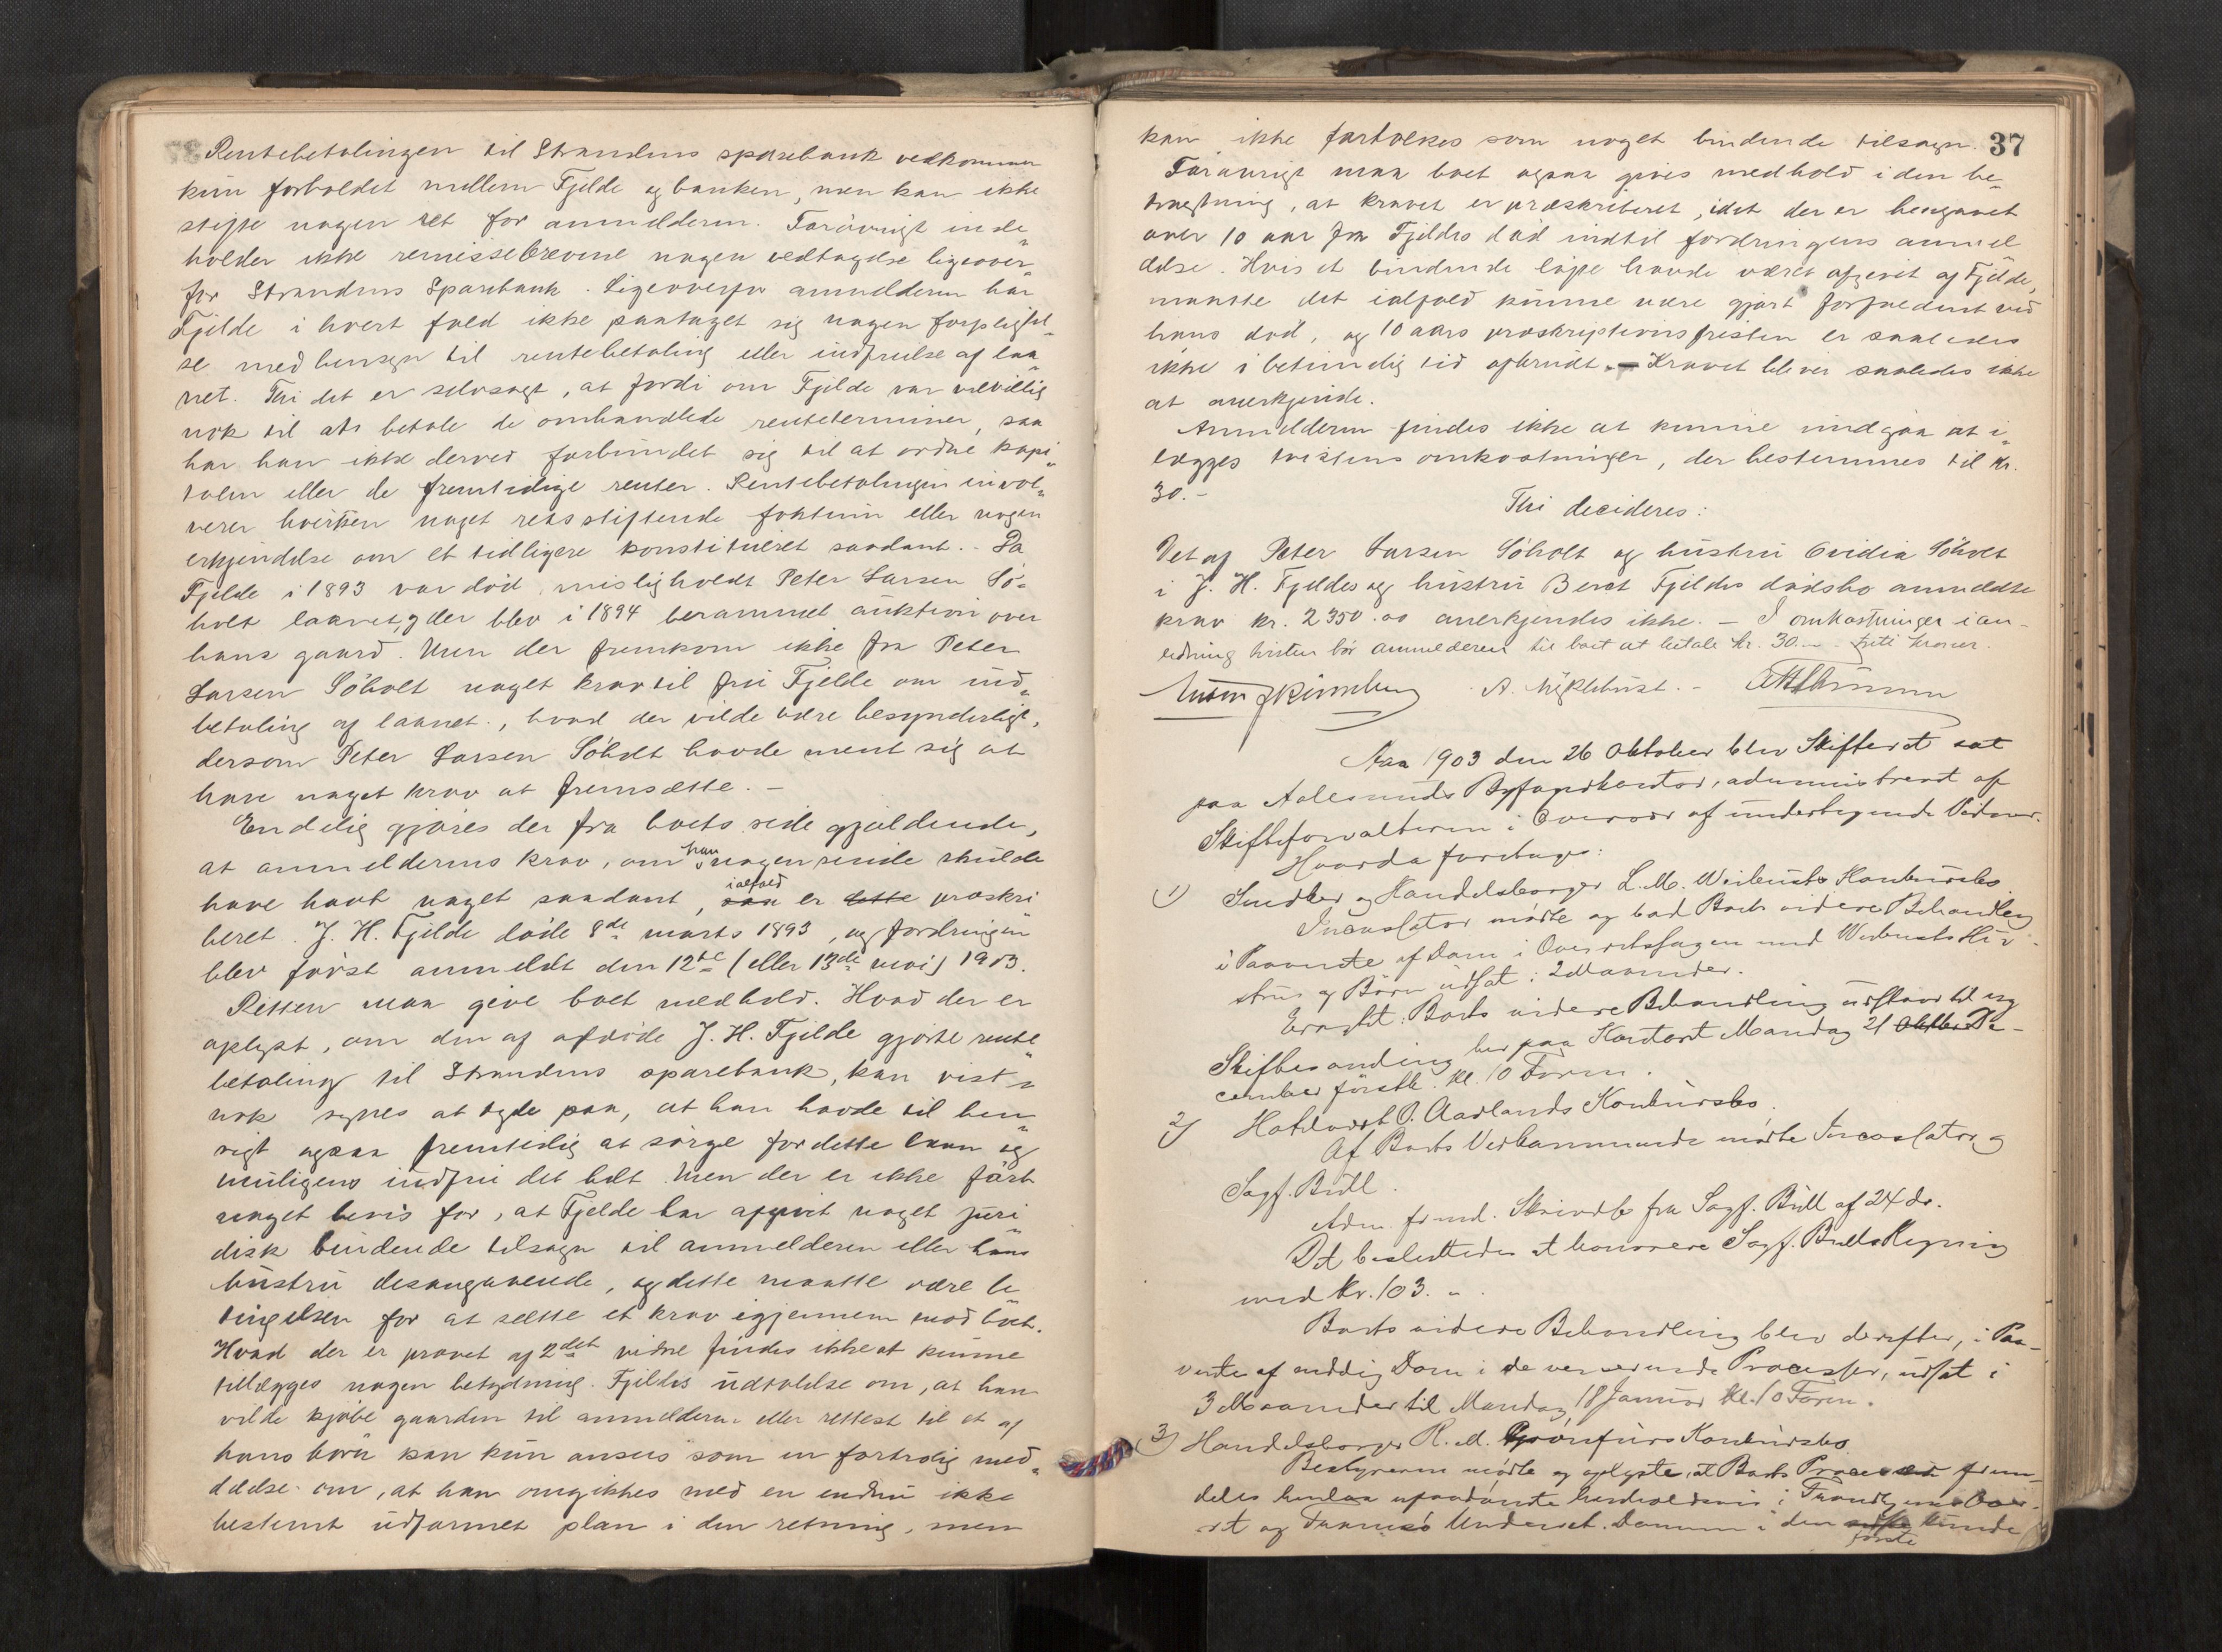 Rentebetalingen til Strandens sparebank vedkommer
kun forholdet mellem Fjelde og banken, men kan ikke
stifte nogen ret for anmelderen. Forøvrigt inde„
holder ikke remissebrevene nogen vedtagelse ligeover„
for Strandens Sparebank. Ligeoverfor anmelderen har
Fjelde i hvert fald ikke paataget sig nogen forpligtel„
se med hensyn til rentebetaling eller indfrielse af laa„
net. Thi det er selvsagt, at fordi om Fjelde var velvillig
nok til at betale de omhandlede renteterminer, saa
har han ikke derved forbundet sig til at ordne kapi„
talen eller de fremtidige renter. Rentebetalingen invol„
verer hverken noget retsstiftende faktum eller nogen
erkjendelse om et tidligere konstitueret saadant. Da
Fjelde i 1893 var død, misligholdt Peter Larsen Sø„
holt laanet, og der blev i 1894 berammet auktion over
hans gaard. Men der fremkom ikke fra Peter
Larsen Søholt noget krav til fru Fjelde om ind„
betaling af laanet, hvad der vilde være besynderligt,
dersom Peter Larsen Søholt havde ment sig at
have noget krav at fremsætte. –
Endelig gjøres der fra boets side gjældende,
at anmelderens krav, om han nogensinde skulde
have havt noget saadant, ialfald er præskri
beret. J. H. Fjelde døde 8de marts 1893, og fordringen
blev først anmeldt den 12te (eller 13de mai) 1903.
Retten maa give boet medhold. Hvad der er
oplyst, om den af afdøde J. H. Fjelde gjorte rente„
betaling til Strandens sparebank, kan vist„
nok synes at tyde paa, at han havde til hen„
sigt ogsaa fremtidig at sørge for dette laan og
muligens indfri det helt. Men der er ikke ført
noget bevis for, at Fjelde har afgivet noget juri„
disk bindende tilsagn til anmelderen eller hans
hustru desangaaende, og dette maatte være be„
tingelsen for at sætte et krav igjennem mod boet.
Hvad der er provet af 2det vidne findes ikke at kunne
tillægges nogen betydning. Fjeldes udtalelse om, at han
vilde kjøbe gaarden til anmelderen eller rettest til et af
hans børn kan kun ansees som en fortrolig med„
delelse om, at han omgikkes med en endnu ikke
bestemt udformet plan i den retning, men
37
kan ikke fortolkes som noget bindende tilsagn.
Forøvrigt maa boet ogsaa gives medhold i den be„
tragtning, at kravet er præskriberet, idet der er hengaaet
over 10 aar fra Fjeldes død indtil fordringens anmel
delse. Hvis et bindende løfte havde været afgivet af Fjelde,
maatte det ialfald kunne være gjort forfaldent ved
hans død, og 10 aars præskriptionsfristen er saaledes
ikke i betimelig tid afbrudt. – Kravet bliver saaledes ikke
at anerkjende.
Anmelderen findes ikke at kunne undgaa at i„
lægges tvistens omkostninger, der bestemmes til kr.
30.–
Thi decideres:
Det af Peter Larsen Søholt og hustru Ovidia Søholt
i J. H. Fjeldes og hustru Beret Fjeldes dødsbo anmeldte
krav kr. 2350.00 anerkjendes ikke. – I omkostninger i an-
ledning tvisten bør anmelderen til boet at betale kr. 30.– – treti kroner.
Aar 1903 den 26 Oktober blev Skifteret sat
paa Aalesunds Byfogedkontor, administreret af
Skifteforvalteren i Overvær af undertegnede Vidner.
Hvorda foretoges:
1) Snedker og Handelsborger L. M. Konkursbo
Incassator mødte og bad Boets videre Behandling
i Paavente af Dom i Overretssagen med Hu-
stru og Børn udsat i 2 Maaneder.
Eragtet: Boets videre Behandling udstaar til ny
Skiftesamling her paa Kontoret Mandag 21 De-
cember førstk. Kl. 10 Form.
2) P. Aarlands Konkursbo.
Af Boets Vedkommende mødte Incassator og
Sagf. Bull.
Adm. freml. Skrivelse fra Sagf. Bull af 24 ds.
Det besluttedes at honorere Sagf. Bulls Regning
med Kr. 103. „
Boets videre Behandling blev derefter, i Paa-
vente af endelig Dom i de verserende Processer, udsat i
3 Maaneder til Mandag 18 Januar Kl. 10 Form.
3) Handelsborger R. M. Konkursbo.
Bestyreren mødte og oplyste, at Boets frem-
deles upaadømte henholdsvis i Trondhjems Over-
ret og Tromsø Underret. Dommen i den første kunde